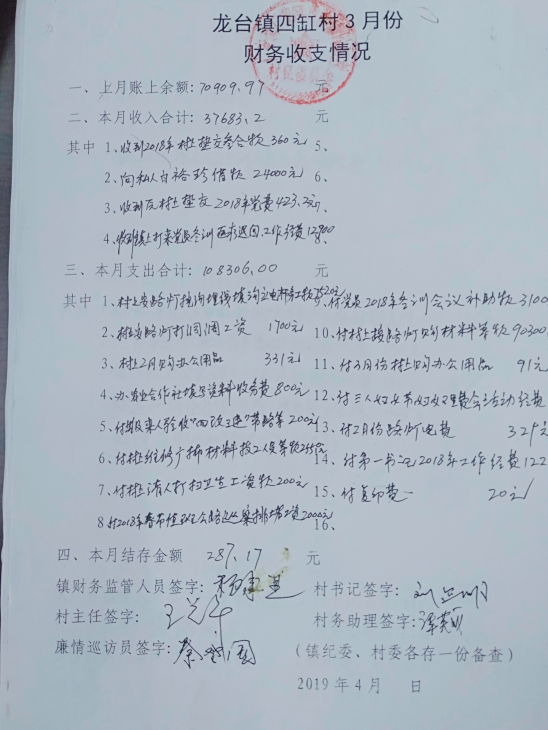 龙台镇四缸村3月份
财务收支情况
一、上月账上余额:70909.97 元
二、本月收入合计:37683.2 元
其中 1、收到2018年村上垫交参合款360元 5、
2、向私人白裕珍借款 24000元 6、
3、收到反村上垫交2018年党费423.2元 7、
4、收到镇上打来党员冬训 工作经费12900 8、
三、本月支出合计:108306.00 元
其中 1、村上安路灯挖沟埋线填沟立电杆务工款 付党员2018年冬训会议补助款3100
2、村上安路灯打洞调工资 1700元 10、付村上接路灯购材料等款90300
3、村上2月购办公用品 331元 11、付3月份村上购办公用品 91元
4、办农业合作社填写资料收务费800元 12、付三八妇女节妇女理费会活动经费
5、付 来人验收"四改三建"等 200元 13、付2月份路灯电费 329元
6、付村上维修广播材料技工人员等款 14、付第一书记2018年工作经费122
7、付村上请人打扫卫生工资款200元 15、付复印费 20元
8、付2018年春节值班 工资2000元 16、
四、本月结存金额 287.17 元
镇财务监管人员签字: 村书记签字:
村主任签字: 村务助理签字:
廉情巡访员签字: (镇纪委、村委各存一份备查)
2019年4月 日